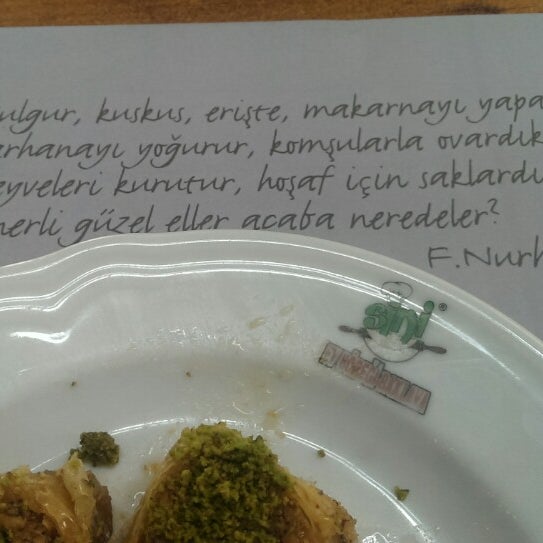 ulgur, kuskus, erişte, makarnayı yapa
rhanayı yoğurur, komşularla ovardık
eyveleri kurutur, hoşaf için saklardı
nerli güzel eller acaba neredeler?
F.Nurh
sini®